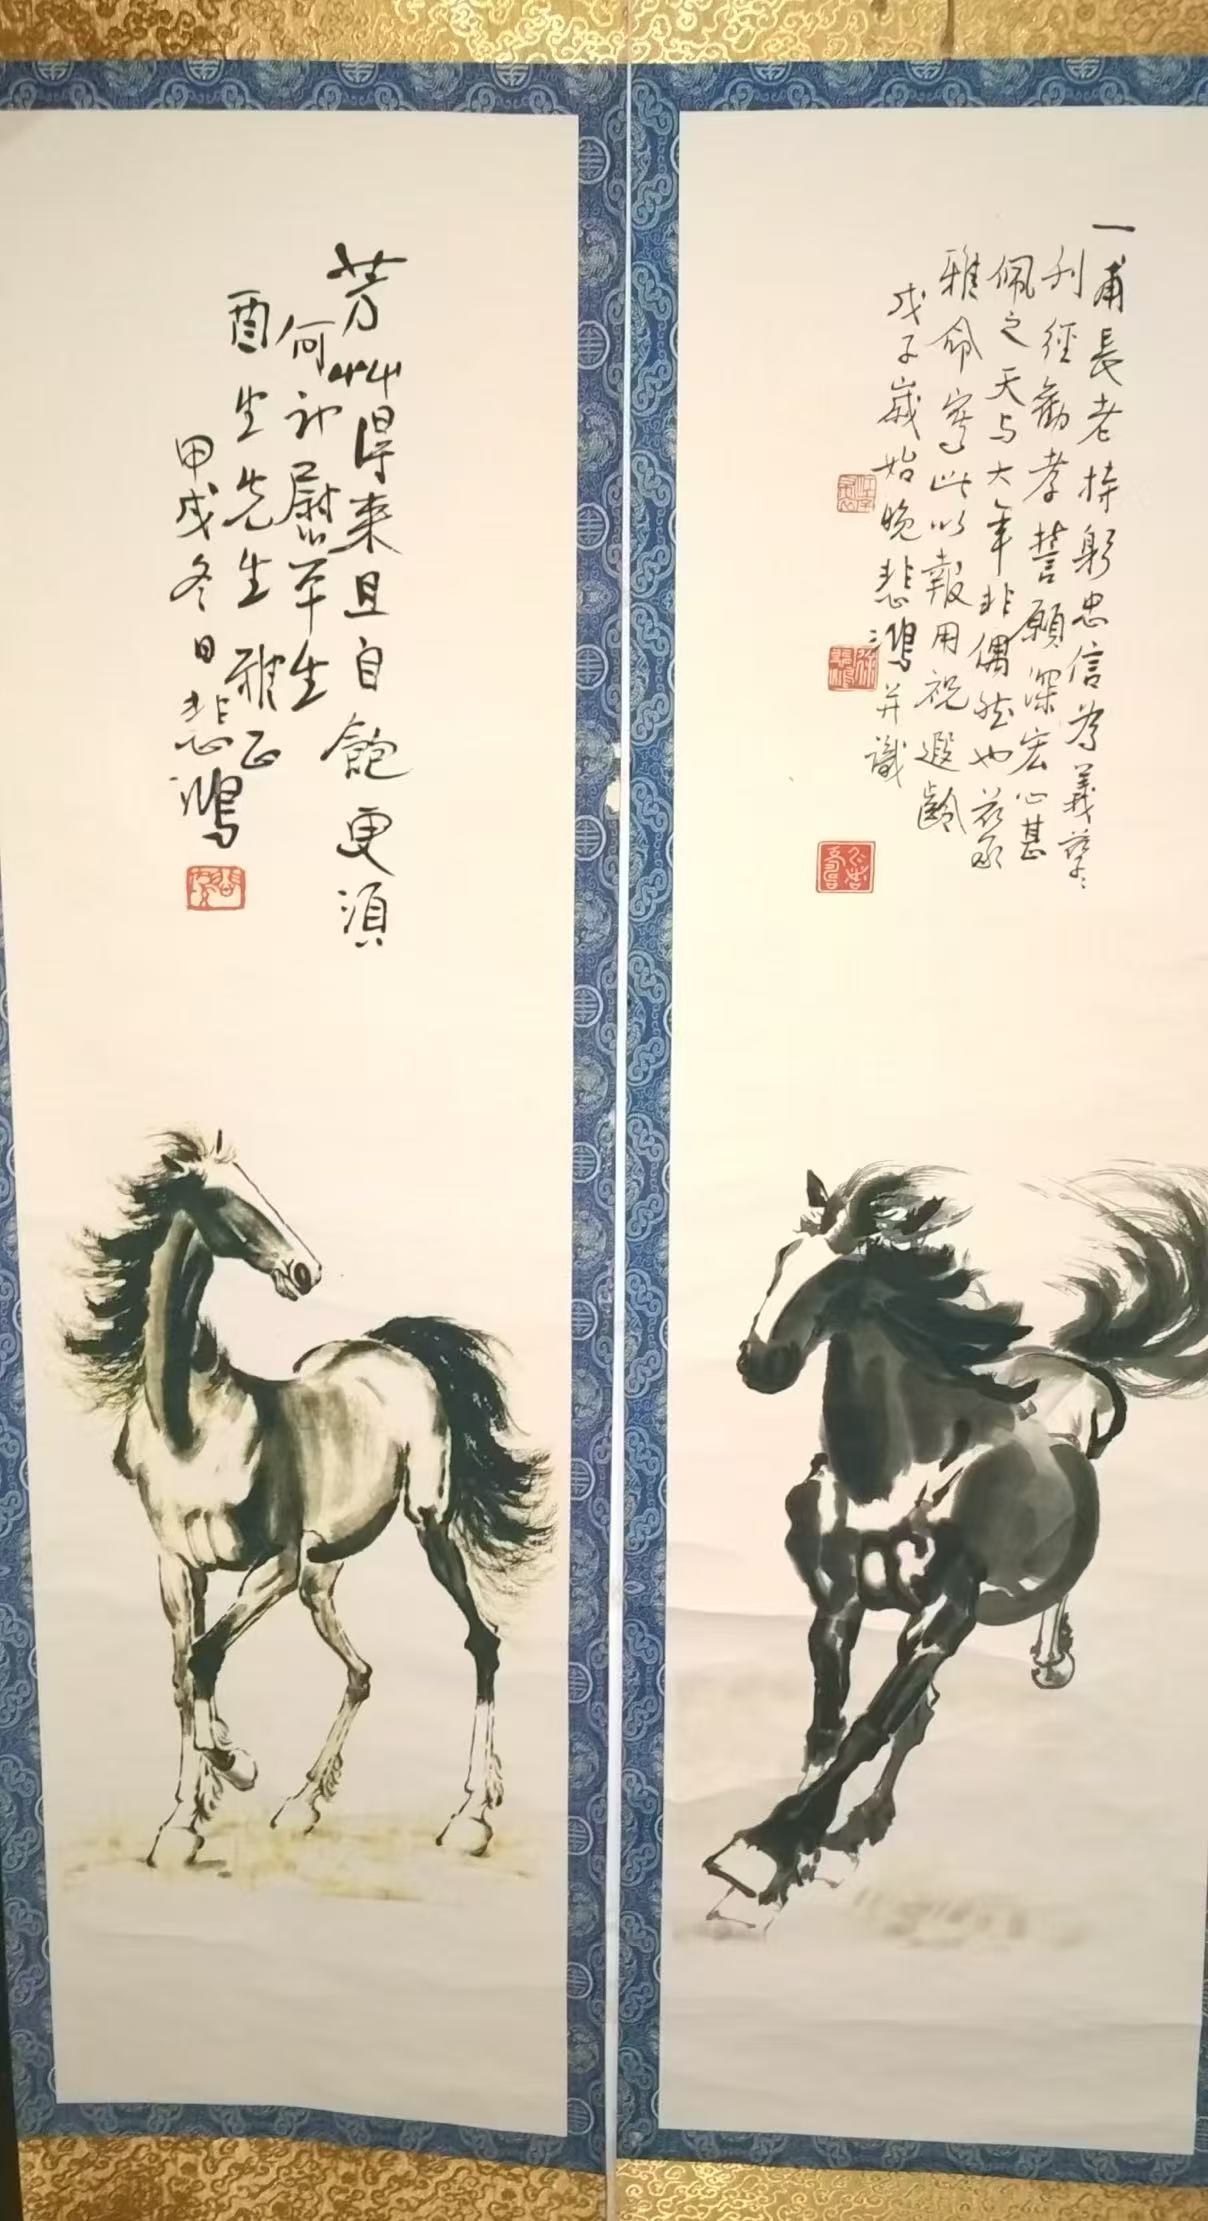 一甫長老持躬忠信為義孳孳
利經勸孝誓願深宏心甚
佩之天与大年非偶然也茲承
雅命寫此以報用祝遐齡
戊子歲始晚悲鴻并識
芳艸得来且自飽更須
何计慰平生
酉生先生雅正
甲戌冬日悲鴻